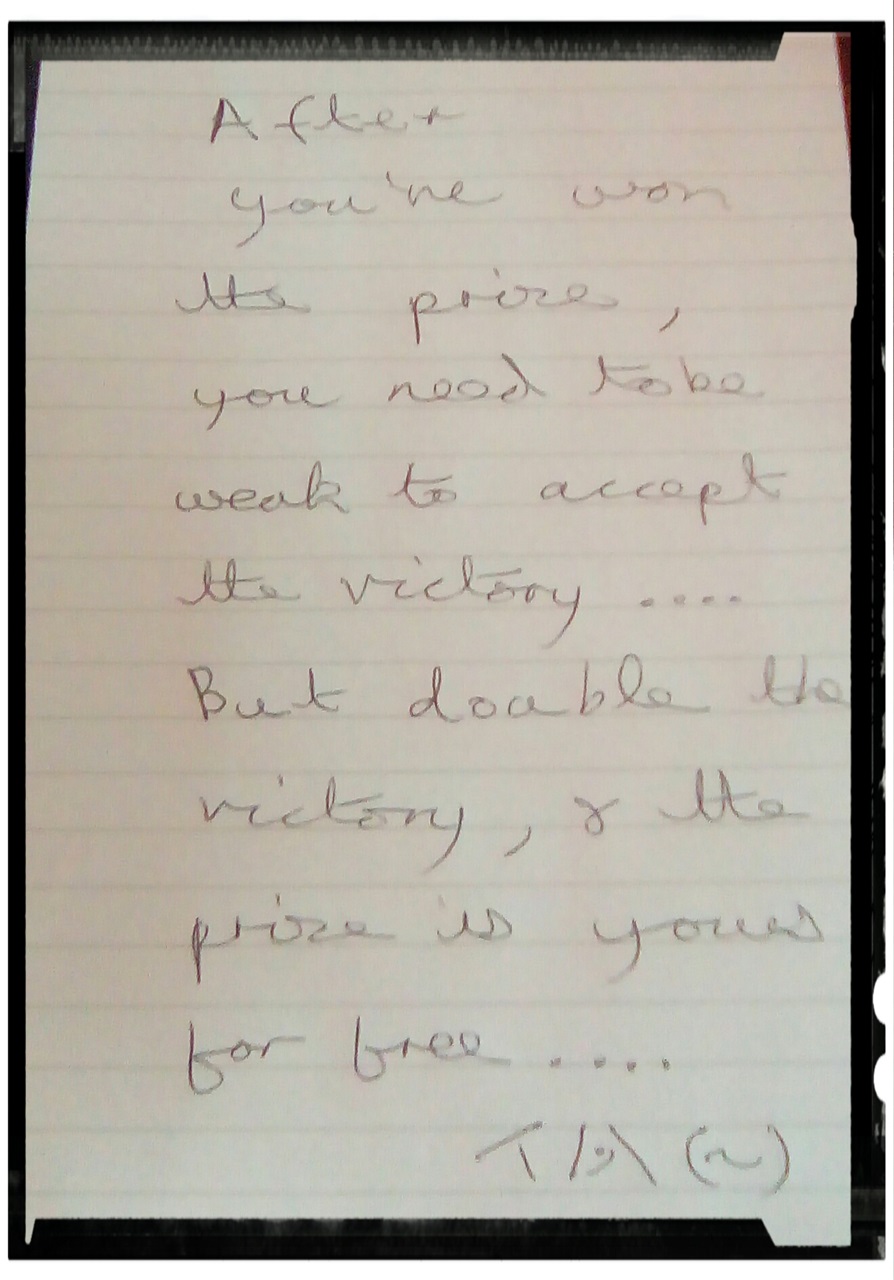 After
you've won
the prize,
you need to be
weak to accept
the victory ....
But double the
victory, & the
prize is yours
for free ....